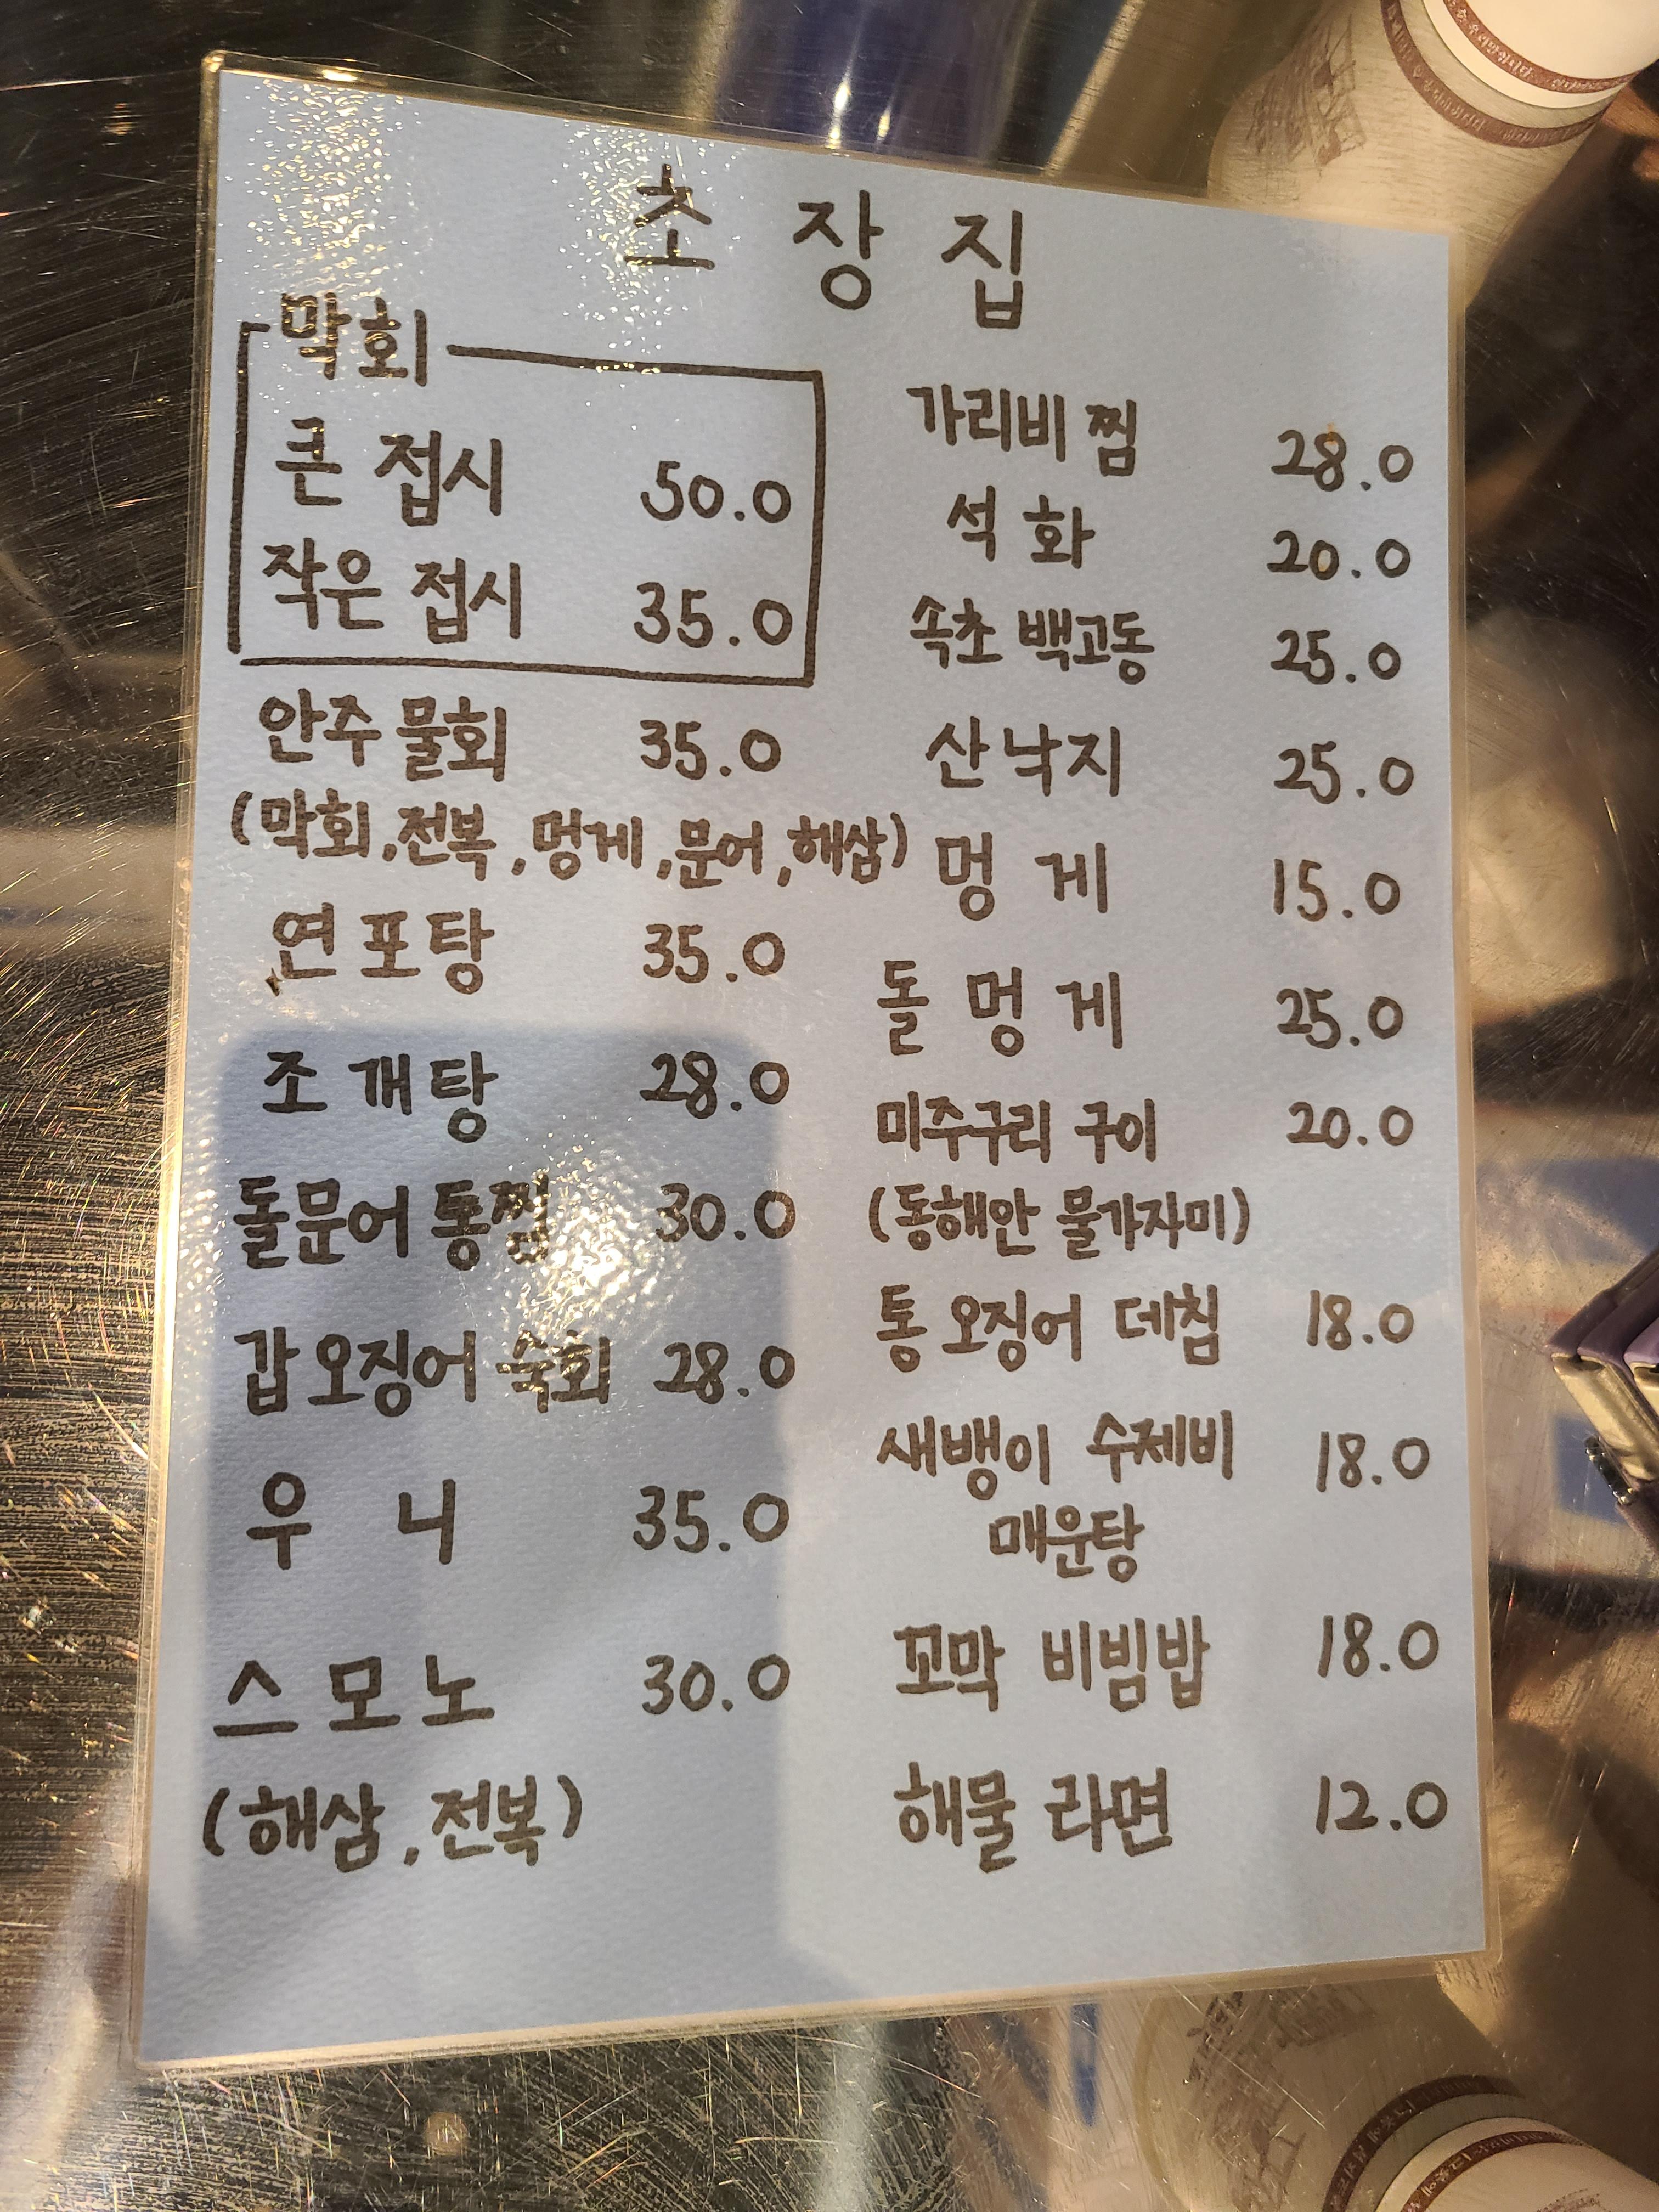 초장집
막회
큰 접시 50.0
작은 접시 35.0
안주 물회 35.0
(막회, 전복, 멍게, 문어, 해삼)
연포탕 35.0
조개탕 28.0
돌문어 통찜 30.0
갑오징어 숙회 28.0
우니 35.0
스모노 30.0
(해삼, 전복)
가리비 찜 28.0
석화 20.0
속초 백고동 25.0
산낙지 25.0
멍게 15.0
돌멍게 25.0
미주구리 구이 20.0
(동해안 물가자미)
통 오징어 데침 18.0
새뱅이 수제비 18.0
매운탕
꼬막 비빔밥 18.0
해물 라면 12.0